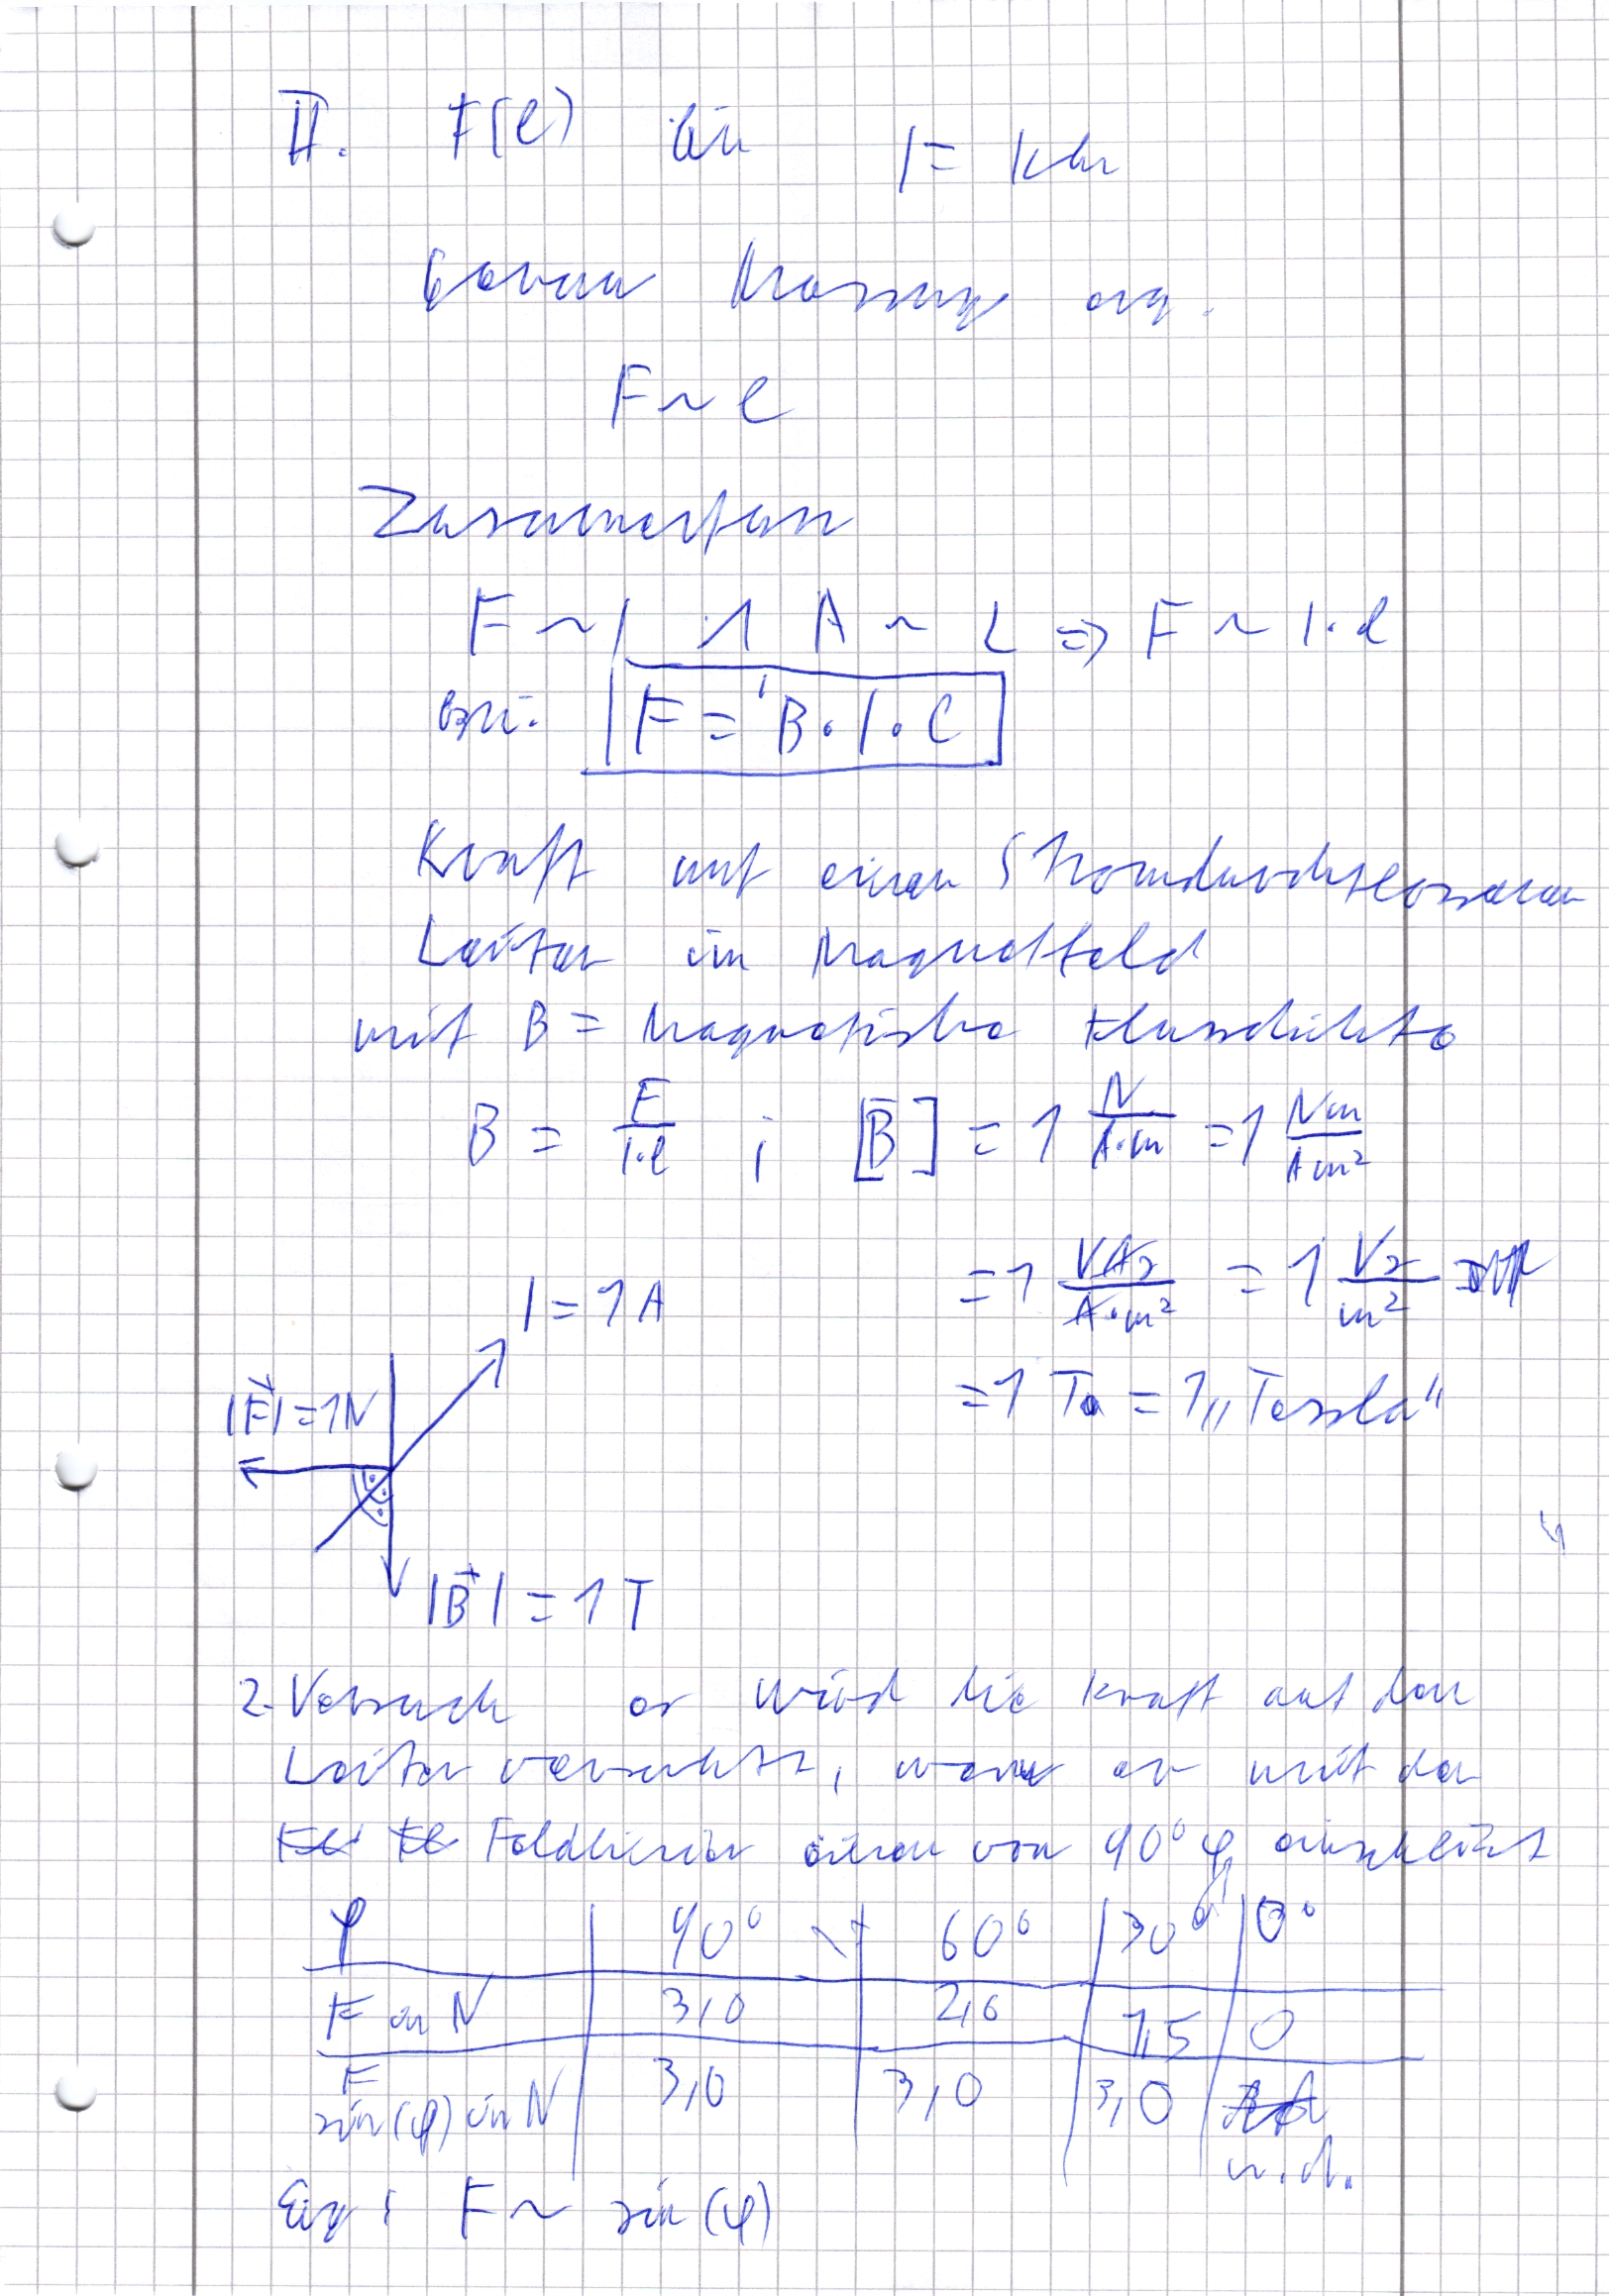 II. F(l) bei I = kon
Genaue Messung erg.
F ~ l
Zusammenfass
F ~ I ∧ A ~ L ⇒ F ~ I · l
bzw. F = B · I · l
Kraft auf einen Stromdurchflossenen
Leiter im Magnetfeld
mit B = Magnetische Flussdichte
B = F/(I·l) ; [B] = 1 N/(A·m) = 1 Nm/(Am²)
= 1 VAs/(A·m²) = 1 Vs/m²
= 1 T = 1 „Tessla"
I = 1A
|F⃗| = 1N
|B⃗| = 1T
2. Versuch es wird die Kraft auf den
Leiter versucht, wenn er mit den
Feldlinien einen von 90° φ einschleizt
φ 90° 60° 30° 0°
F in N 3,0 2,6 1,5 0
F/sin(φ) in N 3,0 3,0 3,0 n.d.
Erg: F ~ sin(φ)